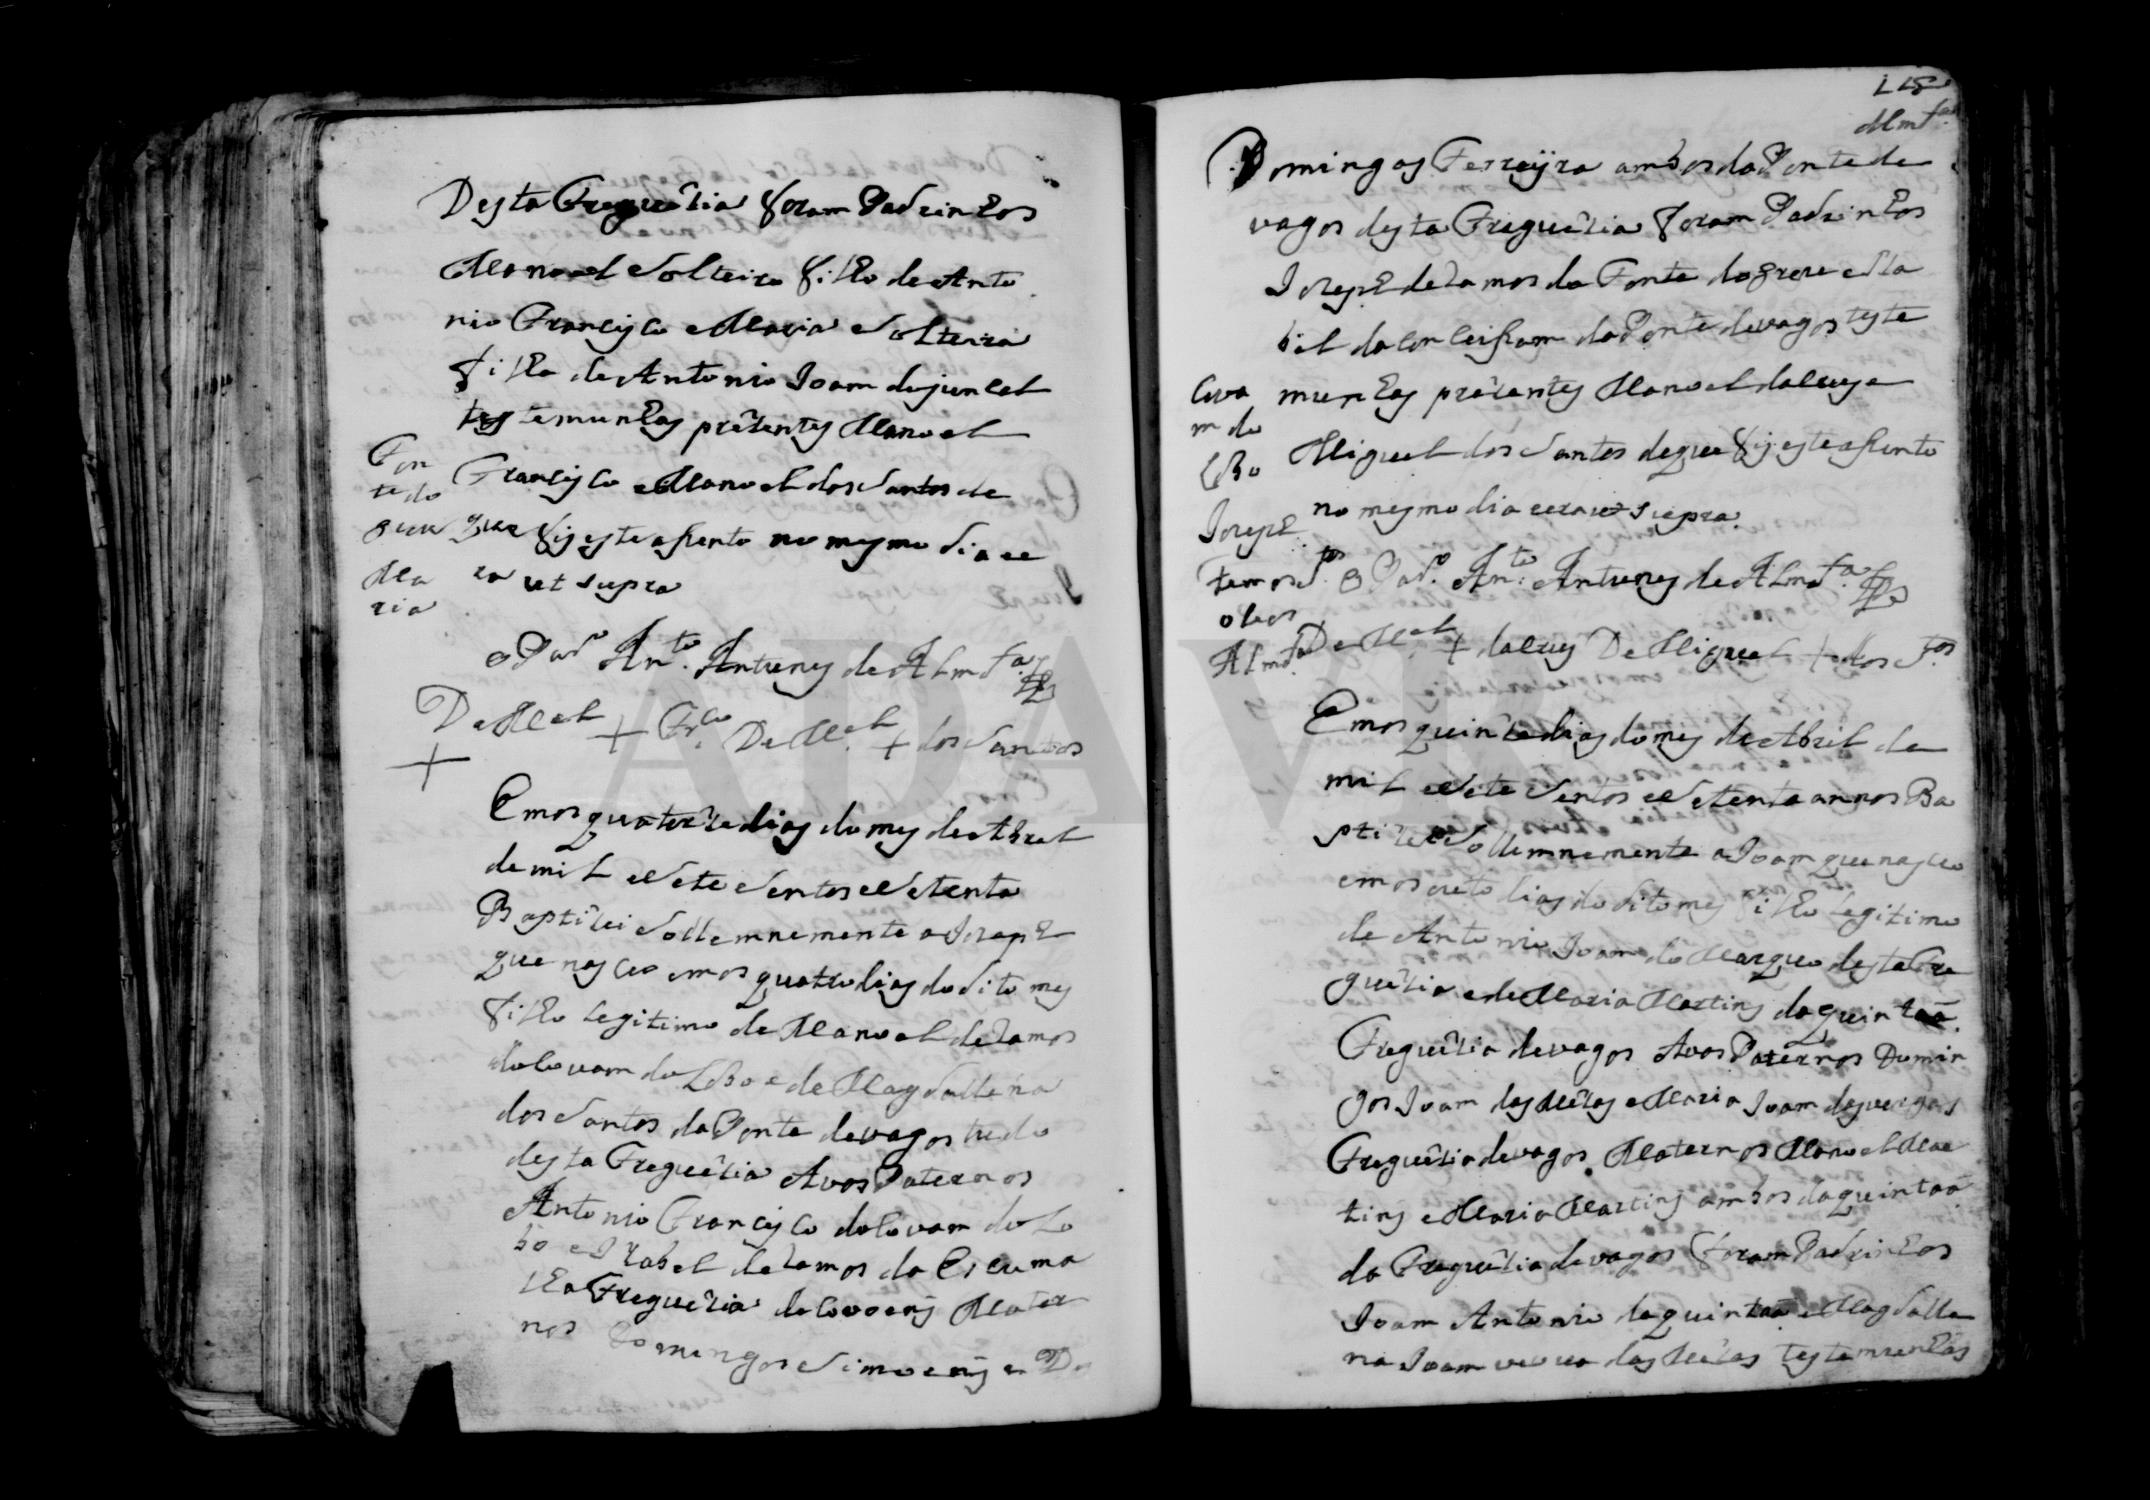 Desta Freguezia foram Padrinhos
Manoel Solteiro filho de Anto
nio Francisco e Maria Solteira
filha de Antonio Joam de juncal
testemunhas prezentes Manoel
Francisco e Manoel dos Santos de
que fis este asento no mesmo dia e
ra ut supra
Fon
te do
grou
Ma
ria
o Pad.e An.to Antunes de Almd.a
De Mel + Fr.co De Mel + dos Santos
+
Em os quatorze dias do mes de Abril
de mil e Sete Sentos e Setenta
Baptizei Sollemnemente a Joseph
que nasceo em os quatro dias do dito mes
filho legitimo de Manoel de Ramos
do Covam do Lobo e de Magdallena
dos Santos da Ponte de vagos tudo
desta Freguezia Avos Paternos
Antonio Francisco do Covam do Lo
bo e Izabel de Ramos da
Freguezia de Mater
nos Domingos Simoens e
118
Almd.a
Domingas Ferreyra ambos da Ponte de
vagos desta Freguezia foram Padrinhos
Joseph de Ramos da Fonte do grou e Iza
bel da Conceisam da Ponte de vagos teste
munhas prezentes Manoel da Cruz e
Miguel dos Santos de que fis este asento
no mesmo dia era ut supra
Cova
m do
Lobo
Joseph
Ramos
Almd.a
o Pad.e An.to Antunes de Almd.a
De Mel + da Cruz De Miguel + dos S.tos
Em os quinze dias do mes de Abril de
mil e Sete Sentos e Setenta annos Ba
ptizei Sollemnemente a Joam que nasceo
em os outo dias do dito mes filho legitimo
de Antonio Joam do desta Fre
guezia e de Maria Martins da quintaã
Freguezia de vagos Avos Paternos Domin
gos Joam das Mezas e Maria Joam das vergas
Freguezia de vagos Maternos Manoel Mar
tins e Maria Martins ambos da quintaã
da Freguezia de vagos foram Padrinhos
Joam Antonio da quintaã e Magdalle
na Joam veuva das Mezas testemunhas
ADAVR